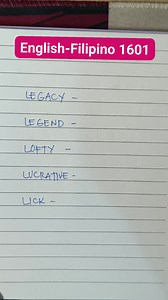 English-Filipino 1601
LEGACY -
LEGEND -
LOFTY -
LUCRATIVE -
LICK -